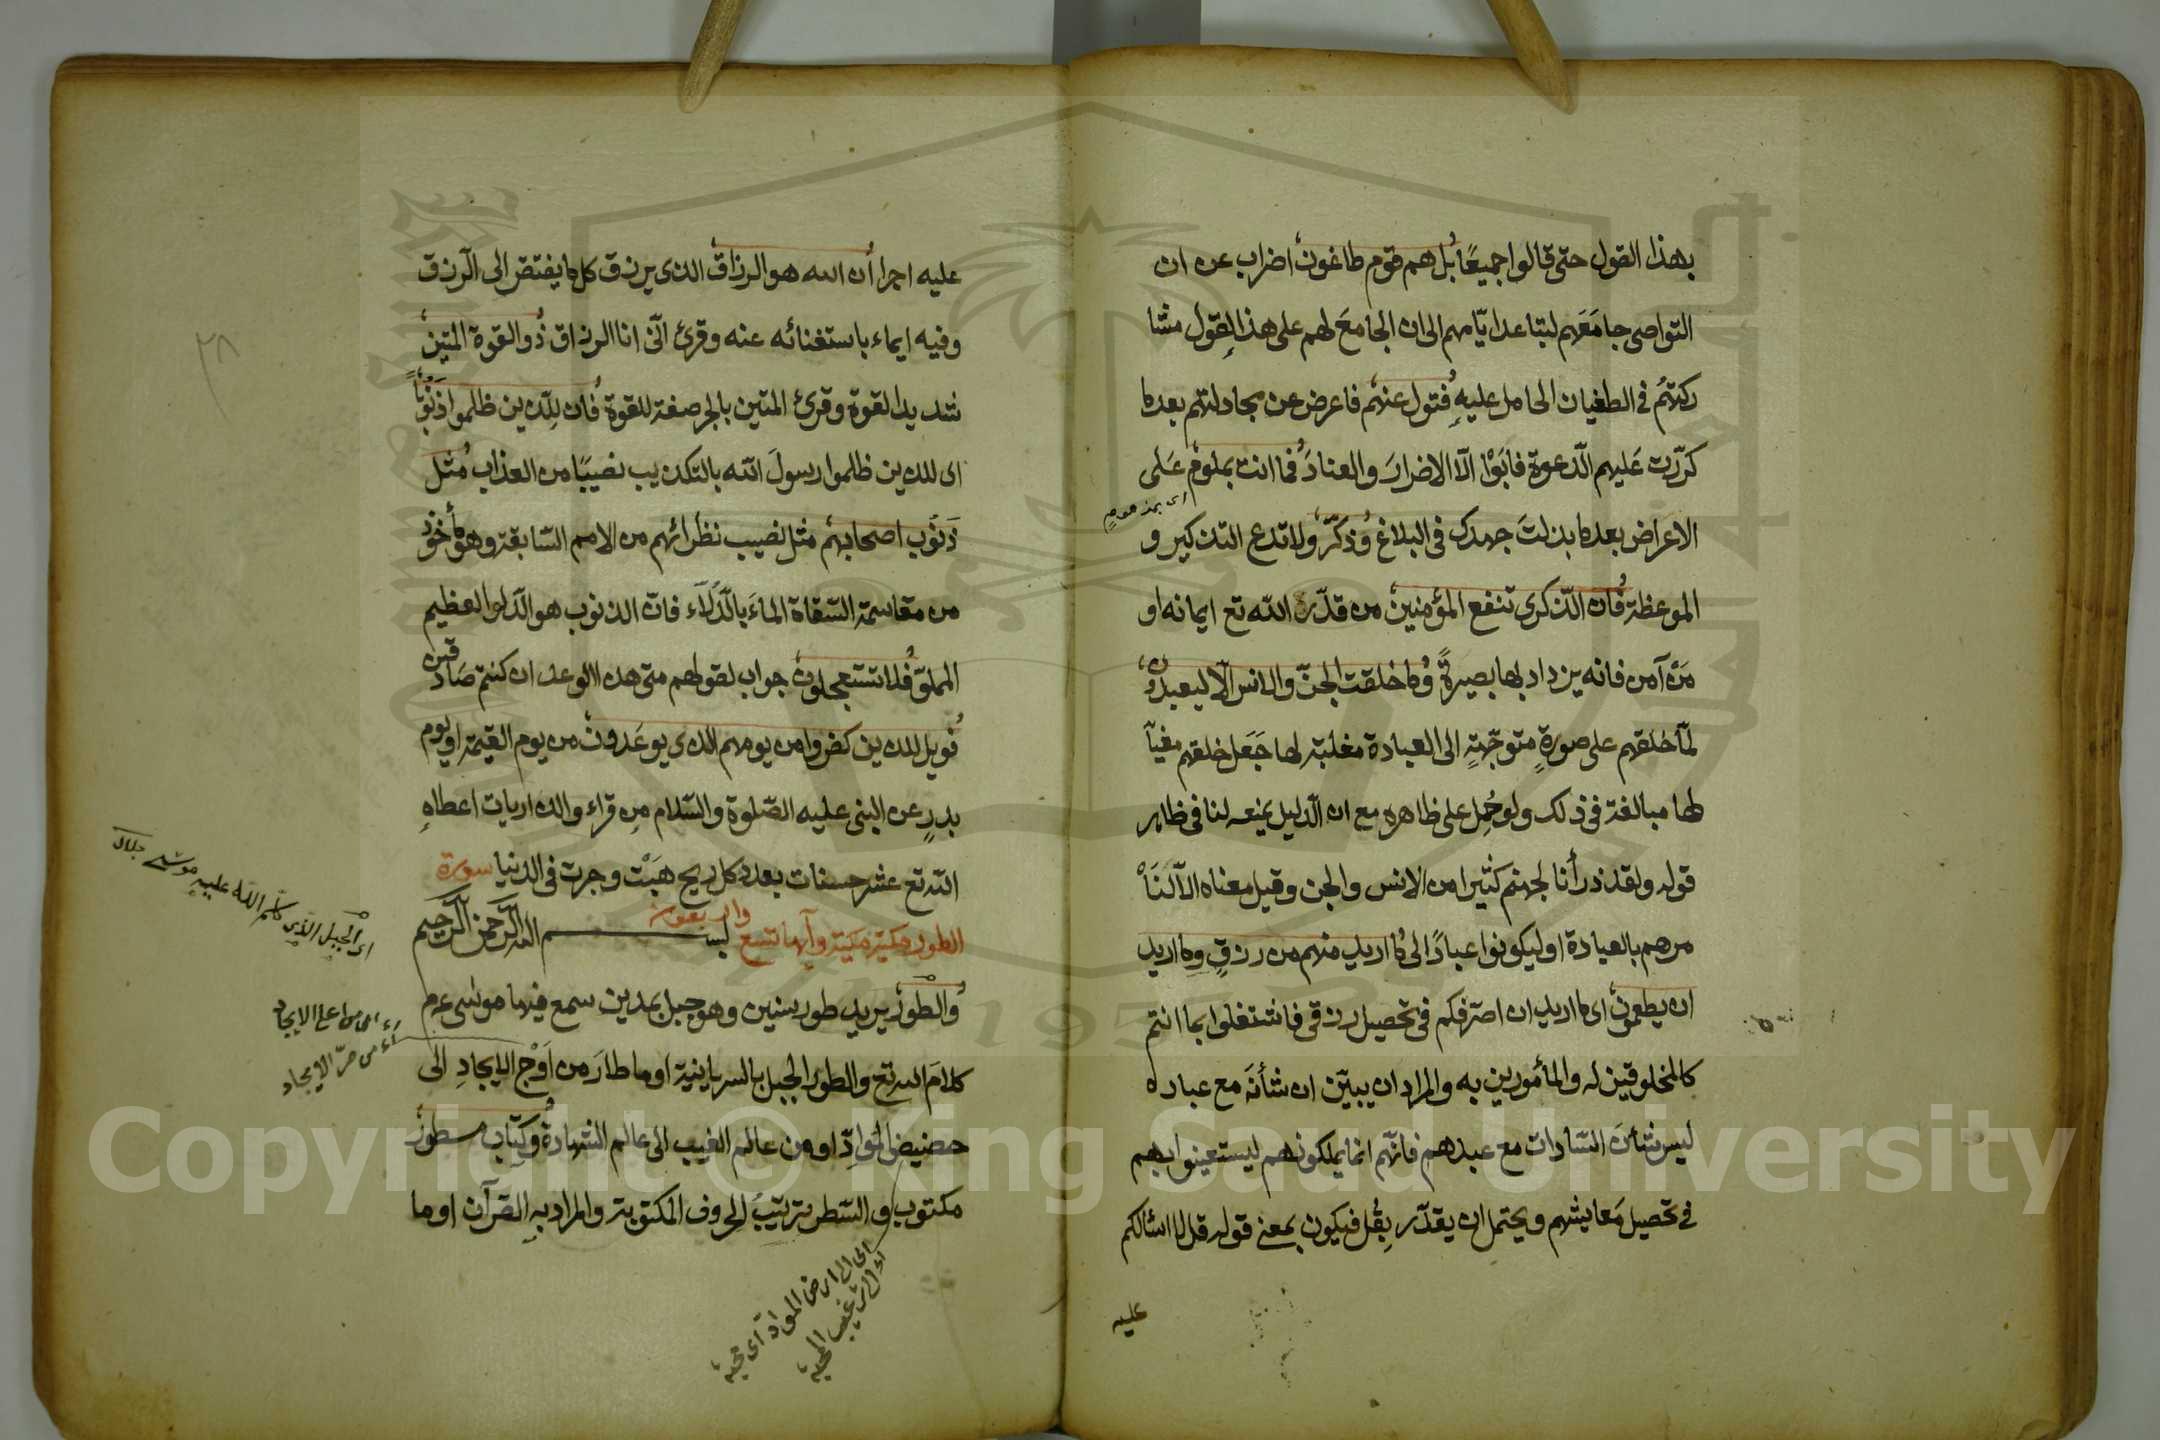 بهذا القول حتى قالوا جميعًا بل هم قوم طاغون اضراب عن ان
التواصى جامعهم لتباعد ايّامهم الى ان الجامع لهم على هذا القول مشا
ركتهُم فى الطغيان الحامل عليهِ فتول عنهم فاعرض عن مجادلتهم بعدما
كرّرت عليهم الدّعوة فابَوْا الّا الاضرارَ والعنادَ فما انت بملوم على
اى بمذمومٍ
الاعراض بعدما بذلتَ جهدك فى البلاغ وذكّر ولا تدع التذكير و
الموعظة فان الذّكرى تنفع المؤمنين من قدّره اللّه تع ايمانه او
مَنْ آمن فانه يزداد بها بصيرةً وما خلقت الجنّ والانس الّا ليعبدون
لمّا خلقهم على صورةٍ متوجّهةٍ الى العبادة مغلبة لها جَعَل خلقهم مغيّا
لها مبالغة فى ذلك ولو حُمِل على ظاهره مع ان الدّليل يمنعه لنا فى ظاهر
قوله ولقد ذرأنا لجهنم كثيرا من الانس والجن وقيل معناه الّا لنَأْ
مرهم بالعبادة او ليكونوا عبادًا لى ما اريد منهم من رزقٍ وما اريد
ان يطعمون اى ما اريد ان اصرفكم فى تحصيل رزقى فاشتغلوا بما انتم
كالمخلوقين له والمأمورين به والمراد ان يبيّن ان شأنَه مع عباده
ليس شأنَ السّادات مع عبدهم فانّهم انما يملكونهم ليستعينوا بهم
فى تحصيل مَعايشهم ويحتمل ان يقدّر بِقُل فيكون بمعنى قوله قل لا اسئالكم
عليه
٢٨
عليه اجرا ان الله هو الرزاق الذى يرزق كل ما يفتقر الى الرزق
وفيه ايماء باستغنائه عنه وقرئ انّى انا الرزاق ذُو القوة المتين
شديد القوة وقرئ المتين بالجر صفة للقوة فان للّذين ظلموا ذَنُوبًا
اى للذين ظلموا رسولَ اللّه بالتكذيب نصيبًا من العذاب مثل
ذَنُوب اصحابهم مثل نصيب نظرائهم من الامم السّابقة وهو مأخوذ
من مقاسمة السّقاة الماءَ بالدّلاء فانّ الذنوب هو الدّلو العظيم
المملوّ فلا تستعجلون جواب لقولهم متى هذا الوعد ان كنتم صَادقين
فويل للذين كفروا من يومهم الذى يوعَدون من يوم القيمة او يوم
بدرٍ عن النبى عليه الصّلوة والسّلام مِن قراء والذاريات اعطاهِ
اللّه تع عشر حسنات بعدد كل ريح هَبّت وجرت فى الدنيا سورة
الطور مكية وآيها تسع واربعون بســـــم اللّه الرّحمن الرّحيم
والطّور يريد طور سنين وهو جبل بمدين سمع فيها موسى عم
كلامَ اللّه تع والطور الجبل بالسريانية او ما طارَ من اَوْج الايجادِ الى
حضيض الموادّ او من عالم الغيب الى عالم الشهادة وكتاب مسطور
مكتوب والسّطر ترتيبُ الحروف المكتوبة والمراد بهِ القرآن او ما
اى الجبل الّذى كلّم اللّه عليهِ موسى جلال
اى من اعلى الايجاد
اى الى ارض الموادّ